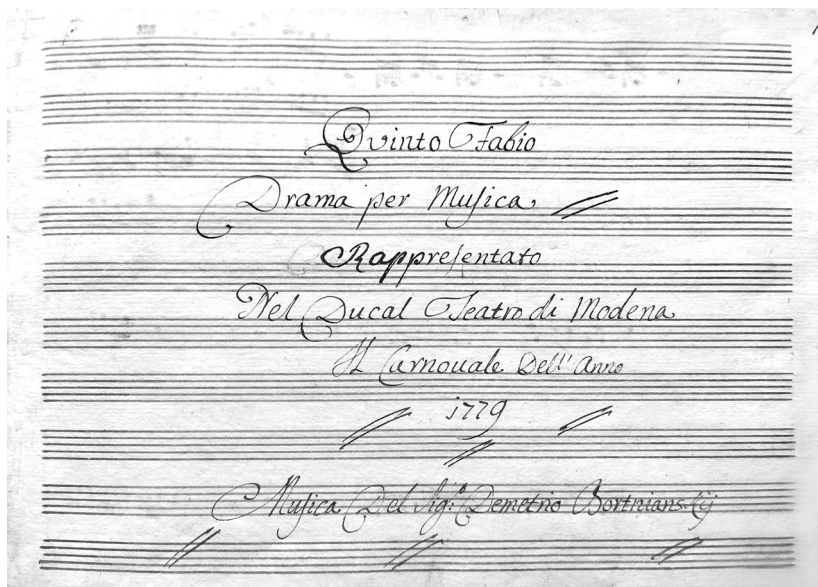 Qvinto Fabio
Drama per Muſica
Rappreſentato
Nel Ducal Teatro di Modena
Il Carnouale Dell' Anno
1779
Muſica Del Sig.r Demetrio Bortnianskij